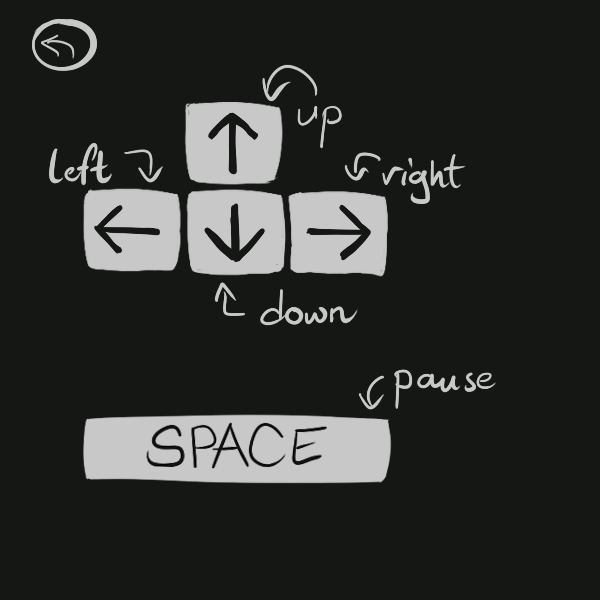 up
left
right
down
pause
SPACE